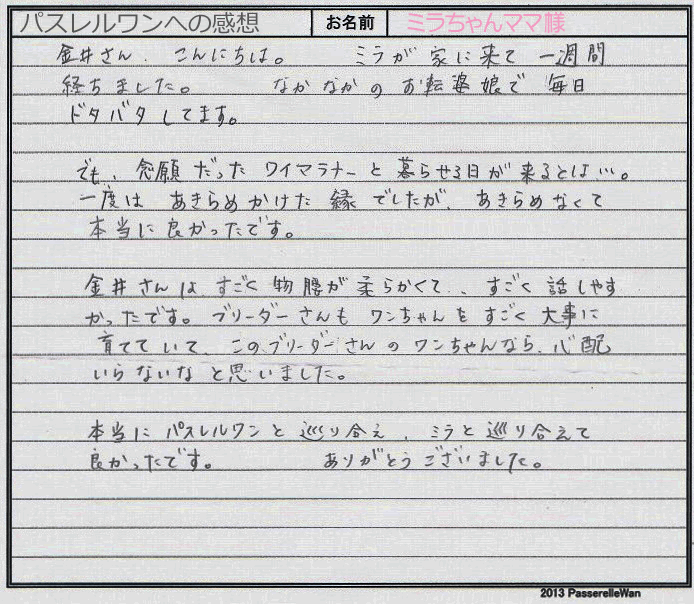 パスレルワンへの感想 お名前 ミラちゃんママ様
金井さん、こんにちは。 ミラが家に来て一週間
経ちました。 なかなかのお転婆娘で毎日
ドタバタしてます。
でも、念願だったワイマラナーと暮らせる日が来るとは…。
一度はあきらめかけた縁でしたが、あきらめなくて
本当に良かったです。
金井さんはすごく物腰が柔らかくて、、すごく話しやす
かったです。ブリーダーさんもワンちゃんをすごく大事に
育てていて、このブリーダーさんのワンちゃんなら、心配
いらないなと思いました。
本当にパスレルワンと巡り合え、ミラと巡り合えて
良かったです。 ありがとうございました。
2013 PasserelleWan